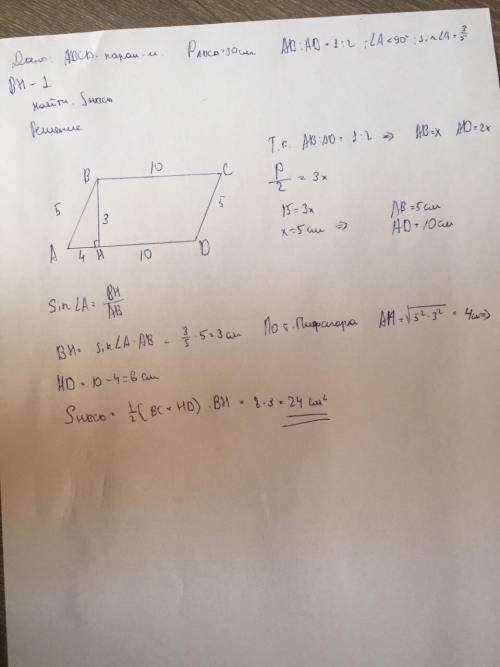 Дано: ABCD - парал-м. PABCD = 30 см AB : AD = 1:2 ; ∠A < 90° ; sin∠A = 3/5
BH - ⊥
Найти: SHBCD
Решение
Т.к. AB:AD = 1:2 ⇒ AB = x AD = 2x
P/2 = 3x
15 = 3x AB = 5 см
x = 5 см ⇒ AD = 10 см
B 10 C
5 3 5
A 4 H 10 D
Sin∠A = BH/AB
BH = sin∠A · AB = 3/5 · 5 = 3 см По т. Пифагора AH = √5² - 3² = 4 см ⇒
HD = 10 - 4 = 6 см
SHBCD = 1/2 (BC + HD) · BH = 8 · 3 = 24 см²